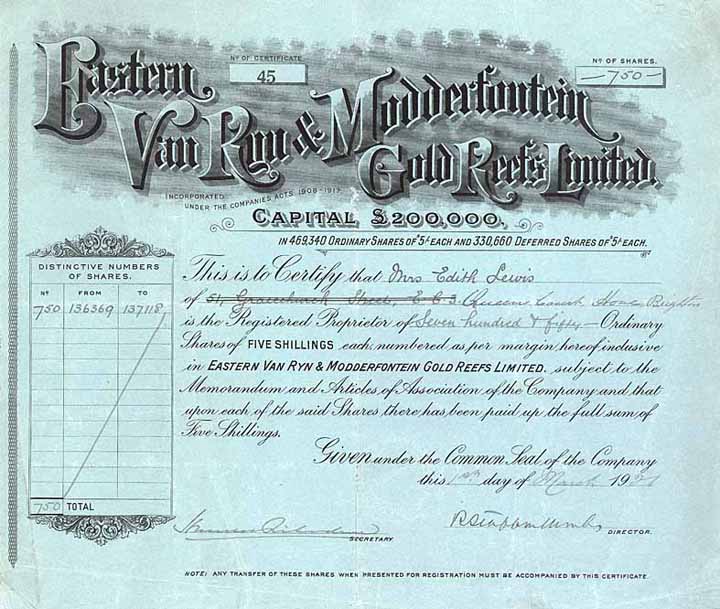 Nº OF CERTIFICATE
45
Nº OF SHARES.
—750—
Eastern
Van Ryn & Modderfontein
Gold Reefs Limited.
INCORPORATED
UNDER THE COMPANIES ACTS. 1908-1917.
CAPITAL $200,000,
IN 469,340 ORDINARY SHARES OF 5/- EACH AND 330,660 DEFERRED SHARES OF 5/- EACH.
DISTINCTIVE NUMBERS
OF SHARES.
Nº FROM TO
750 136369 137118
750 TOTAL
This is to Certify that Mrs Edith Lewis
of 51, Gracechurch Street, E.C.3. Queens House Brighton
is the Registered Proprietor of Seven hundred & fifty — Ordinary
Shares of FIVE SHILLINGS each, numbered as per margin hereof, inclusive
in EASTERN VAN RYN & MODDERFONTEIN GOLD REEFS LIMITED, subject to the
Memorandum and Articles of Association of the Company and that
upon each of the said Shares there has been paid up the full sum of
Five Shillings.
Given under the Common Seal of the Company
this day of March 1921
SECRETARY.
DIRECTOR.
NOTE: ANY TRANSFER OF THESE SHARES WHEN PRESENTED FOR REGISTRATION MUST BE ACCOMPANIED BY THIS CERTIFICATE.